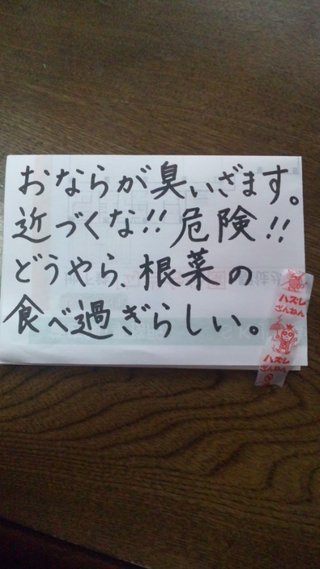 おならが臭いざます。
近づくな!!危険!!
どうやら、根菜の
食べ過ぎらしい。
ハズレ
ざんねん
ハズレ
ざんねん